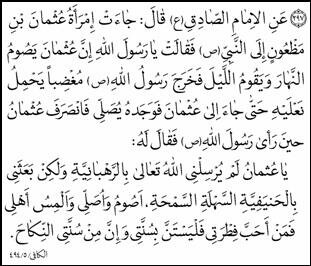 (٢٩٧) عَنِ الْاِمَامِ الصَّادِقِ(ع) قَالَ: جَاءَتْ اِمْرَأَةُ عُثْمَانَ بْنِ
مَظْعُونٍ اِلَى النَّبِيِّ(ص) فَقَالَتْ يَا رَسُولَ اللهِ اِنَّ عُثْمَانَ يَصُومُ
النَّهَارَ وَيَقُومُ اللَّيْلَ فَخَرَجَ رَسُولُ اللهِ(ص) مُغْضِباً يَحْمِلُ
نَعْلَيْهِ حَتَّى جَاءَ اِلَى عُثْمَانَ فَوَجَدَهُ يُصَلِّي فَانْصَرَفَ عُثْمَانُ
حِينَ رَأَى رَسُولَ اللهِ(ص) فَقَالَ لَهُ:
يَا عُثْمَانُ لَمْ يُرْسِلْنِي اللهُ تَعَالَى بِالرَّهْبَانِيَّةِ وَلَكِنْ بَعَثَنِي
بِالْحَنِيفِيَّةِ السَّهْلَةِ السَّمْحَةِ. اَصُومُ وَاُصَلِّي وَاَلْمِسُ اَهْلِي
فَمَنْ اَحَبَّ فِطْرَتِي فَلْيَسْتَنَّ بِسُنَّتِي وَاِنَّ مِنْ سُنَّتِيَ النِّكَاحَ.
الكافي/٥/٤٩٤